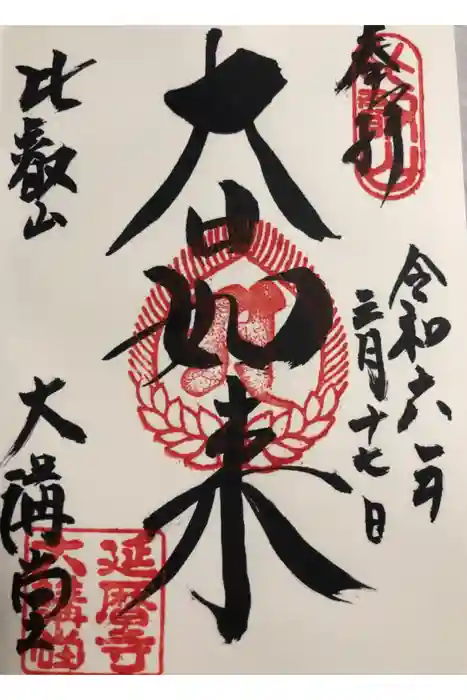 奉拝
比叡山
令和六年
三月十七日
大日如来
比叡山
大講堂
延暦寺
大講堂